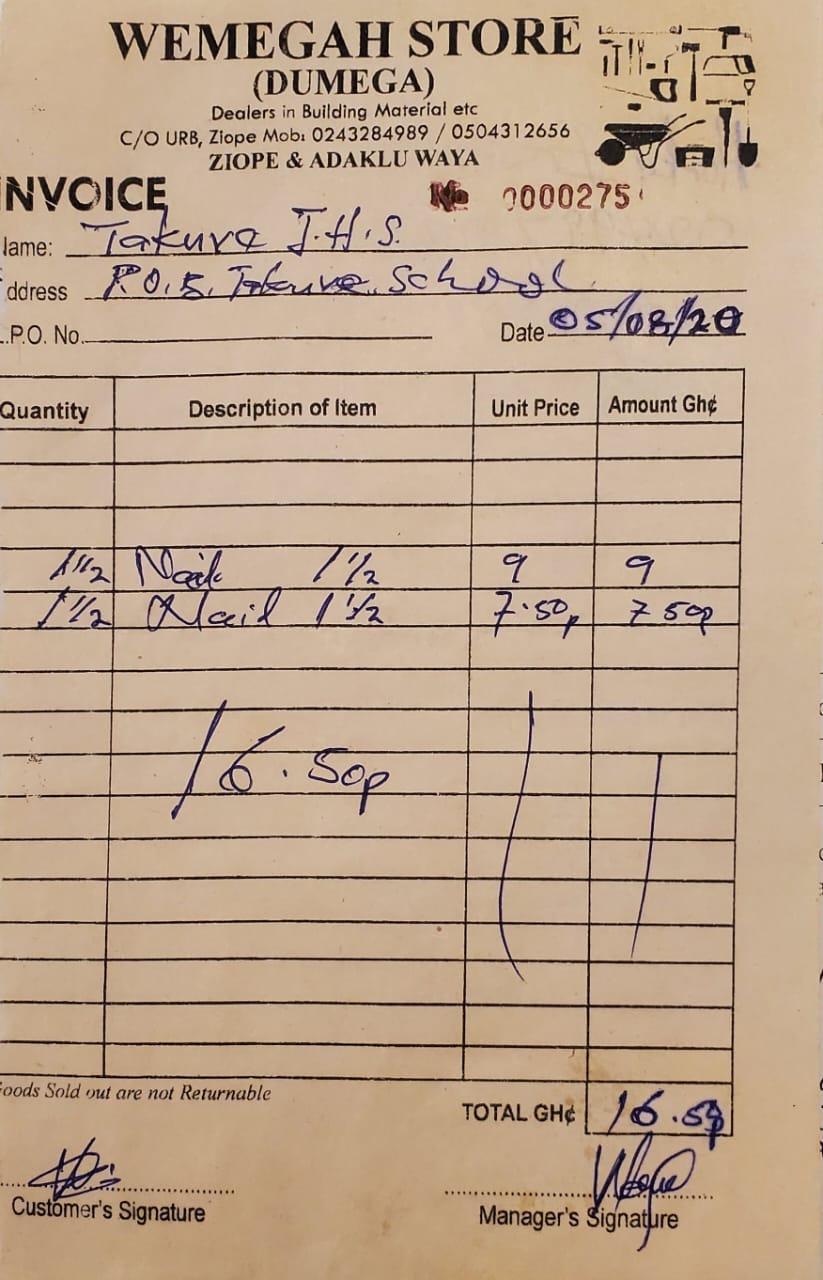 WEMEGAH STORE
(DUMEGA)
Dealers in Building Material etc
C/O URB, Ziope Mob: 0243284989 / 0504312656
ZIOPE & ADAKLU WAYA
NVOICE No 0000275
lame: Takuve J.H.S.
ddress P.O.B. Takuve School
.P.O. No. Date 05/08/20
Quantity Description of Item Unit Price Amount Gh¢
1 1/2 1 1/2 9 9
1 1/2 1 1/2 7.50p 7 50p
16.50p
oods Sold out are not Returnable
TOTAL GH¢ 16.50p
Customer's Signature
Manager's Signature